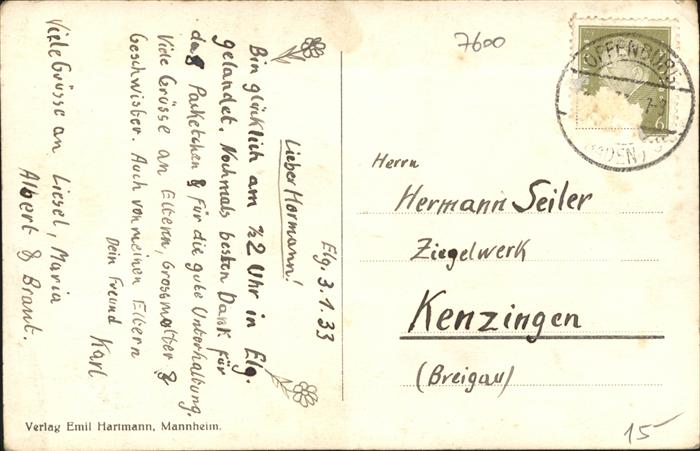 Elg. 3.1.33
Lieber Hermann!
Bin glücklich am ½2 Uhr in Elg.
gelandet. Nochmals besten Dank für
das Packetchen & für die gute Unterhaltung.
Viele Grüsse an Eltern, Grossmutter &
Geschwister. Auch von meinen Eltern
Dein Freund Karl
Viele Grüsse an Liesel, Maria
Albert & Braut.
Verlag Emil Hartmann, Mannheim.
7600
OFFENBURG
(BADEN)
6
Herrn
Hermann Seiler
Ziegelwerk
Kenzingen
(Breigau)
15-